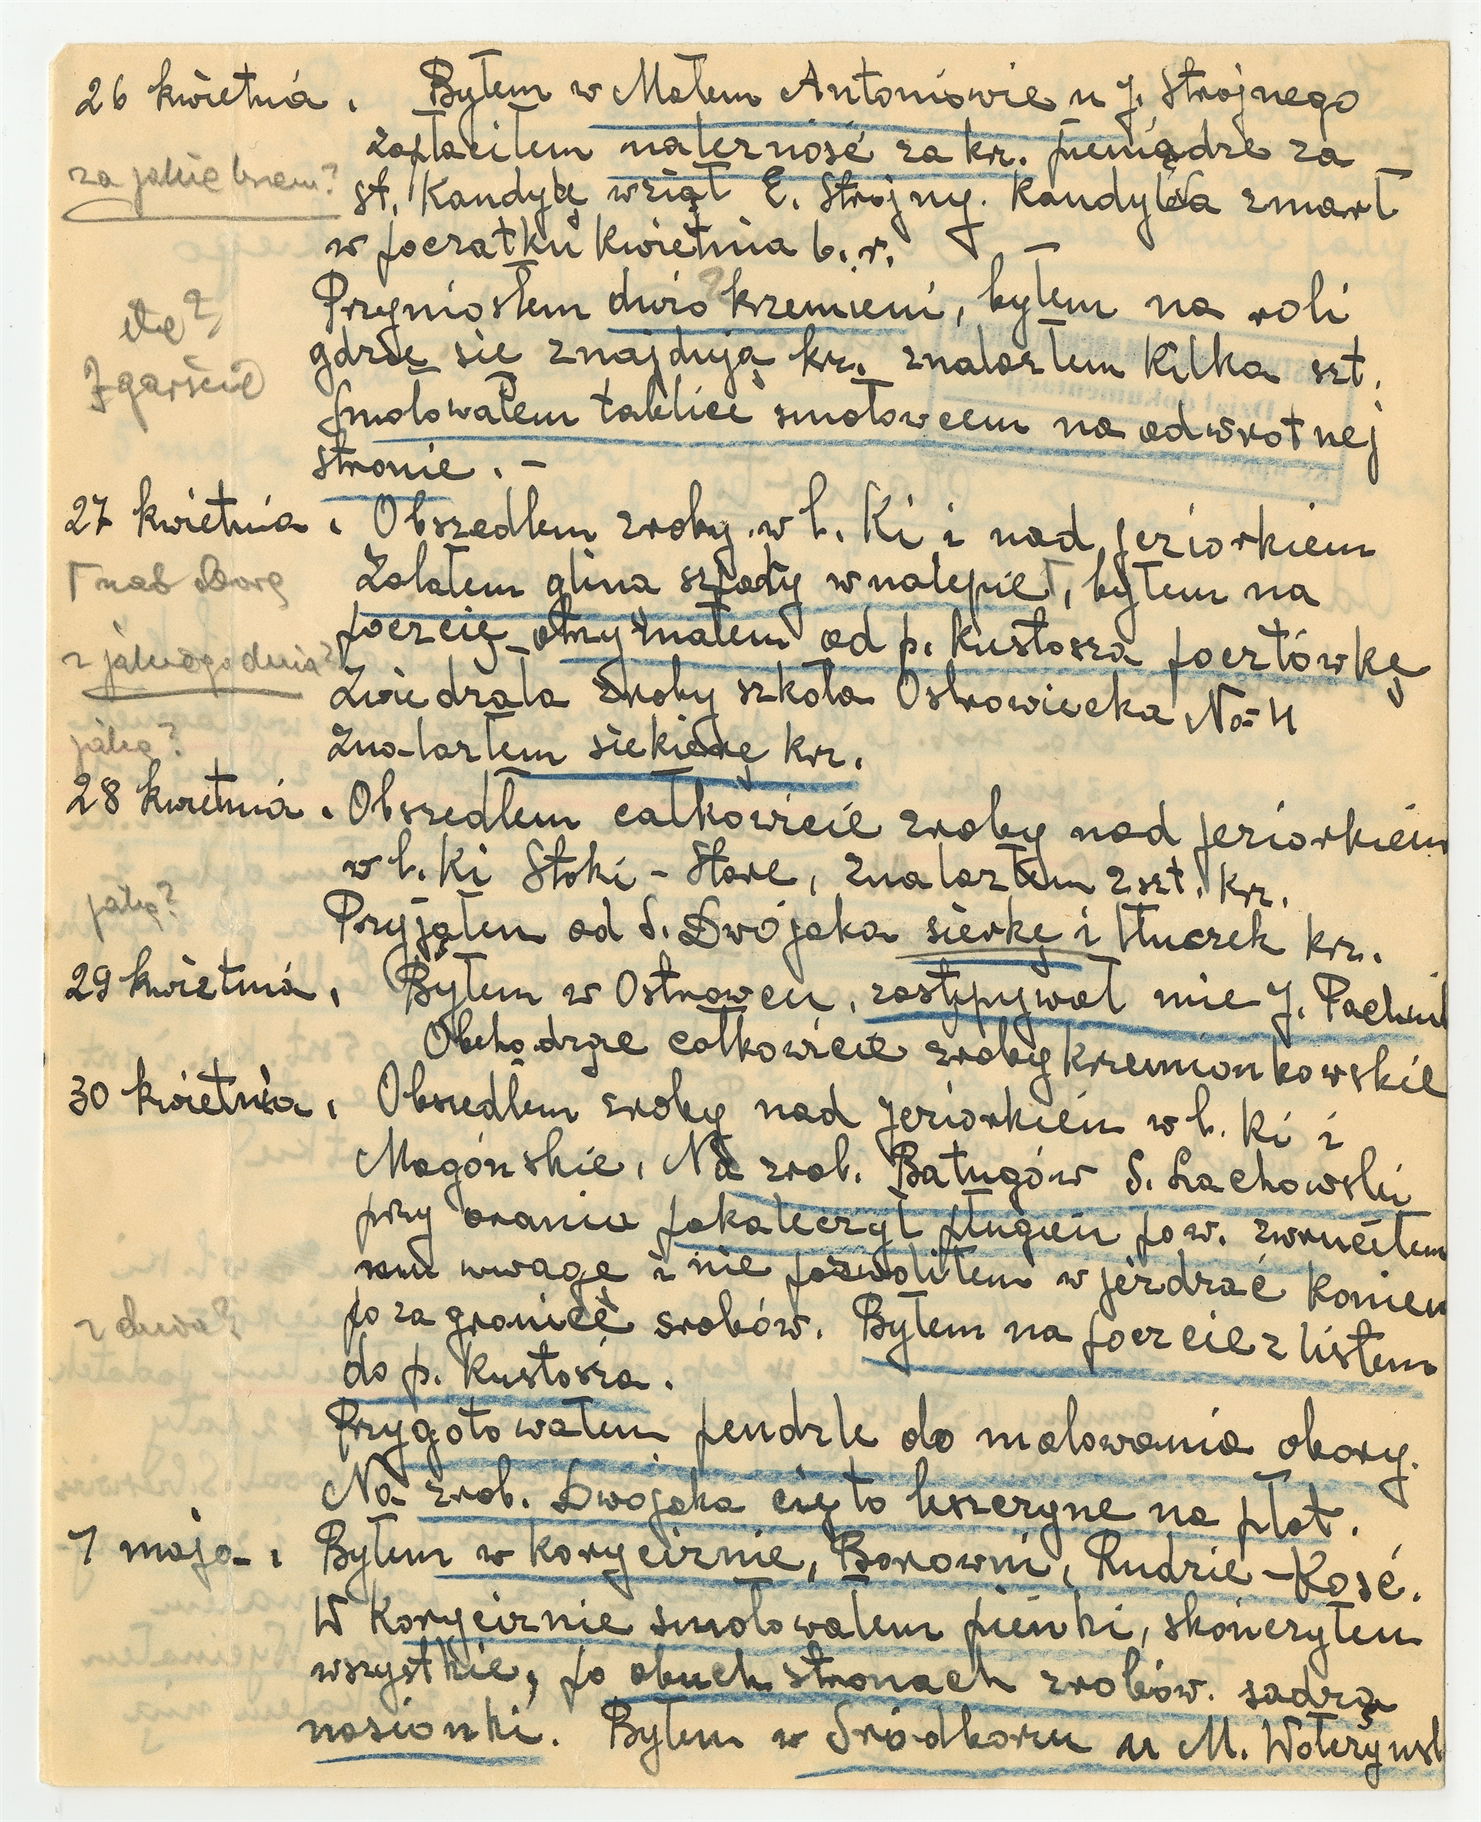 26 kwietnia. Byłem w Małem Antoniowie u J. Strojnego
zapłaciłem należność za kr. pieniądze za
za jakie krzem?
st. Kandybę wziął E. Strojny. Kandyba zmarł
w początku kwietnia b.r. —
Przyniosłem dwió krzemieni, byłem na roli
ile?
gdzie się znajdują kr. znalazłem kilka szt.
Zgarście
smołowałem tablice smołowcem na odwrotnej
stronie. —
27 kwietnia. Obszedłem zroby w b. Ki i nad jeziorkiem
Zalałem gliną szpary w nalepie Γ, byłem na
Γ nad oborą
poczcie otrzymałem od p. Kustosza pocztówkę
z jakiego dnia?
Zwiedzała zroby szkoła Ostrowiecka No 4
Znalazłem siekierę kr.
jaką?
28 kwietnia. Obszedłem całkowicie zroby nad jeziorkiem
w b. Ki Stoki - Stare, znalazłem 2 szt. kr.
Przyjąłem od S. Dwojaka sierkę i tłuczek kr.
jaką?
29 kwietnia. Byłem w Ostrowcu, zastępywał mie J. Pachni
Obchodząc całkowicie zroby krzemionkowskie
30 kwietnia. Obszedłem zroby nad jeziorkiem w b. Ki i
Magónskie. Na zrob. Batugów S. Lachowski
przy oraniu pokaleczył pługiem pow. zwruciłem
mu uwagę i nie pozwoliłem wjeżdzać koniem
poza granice srobów. Byłem na poczcie z listem
z dwa?
do p. Kustosza.
Przygotowałem pendzle do malowania obory.
Na zrob. Dwojaka cięto leszczyne na płot.
1 maja. Byłem w Koryciznie, Borowni, Rudzie - Kość.
W Koryciznie smołowałem pieńki, skończyłem
wszystkie, po obuch stronach zrobów. sadzą
nasionki. Byłem w Sródborzu u M. Wołczyńsk